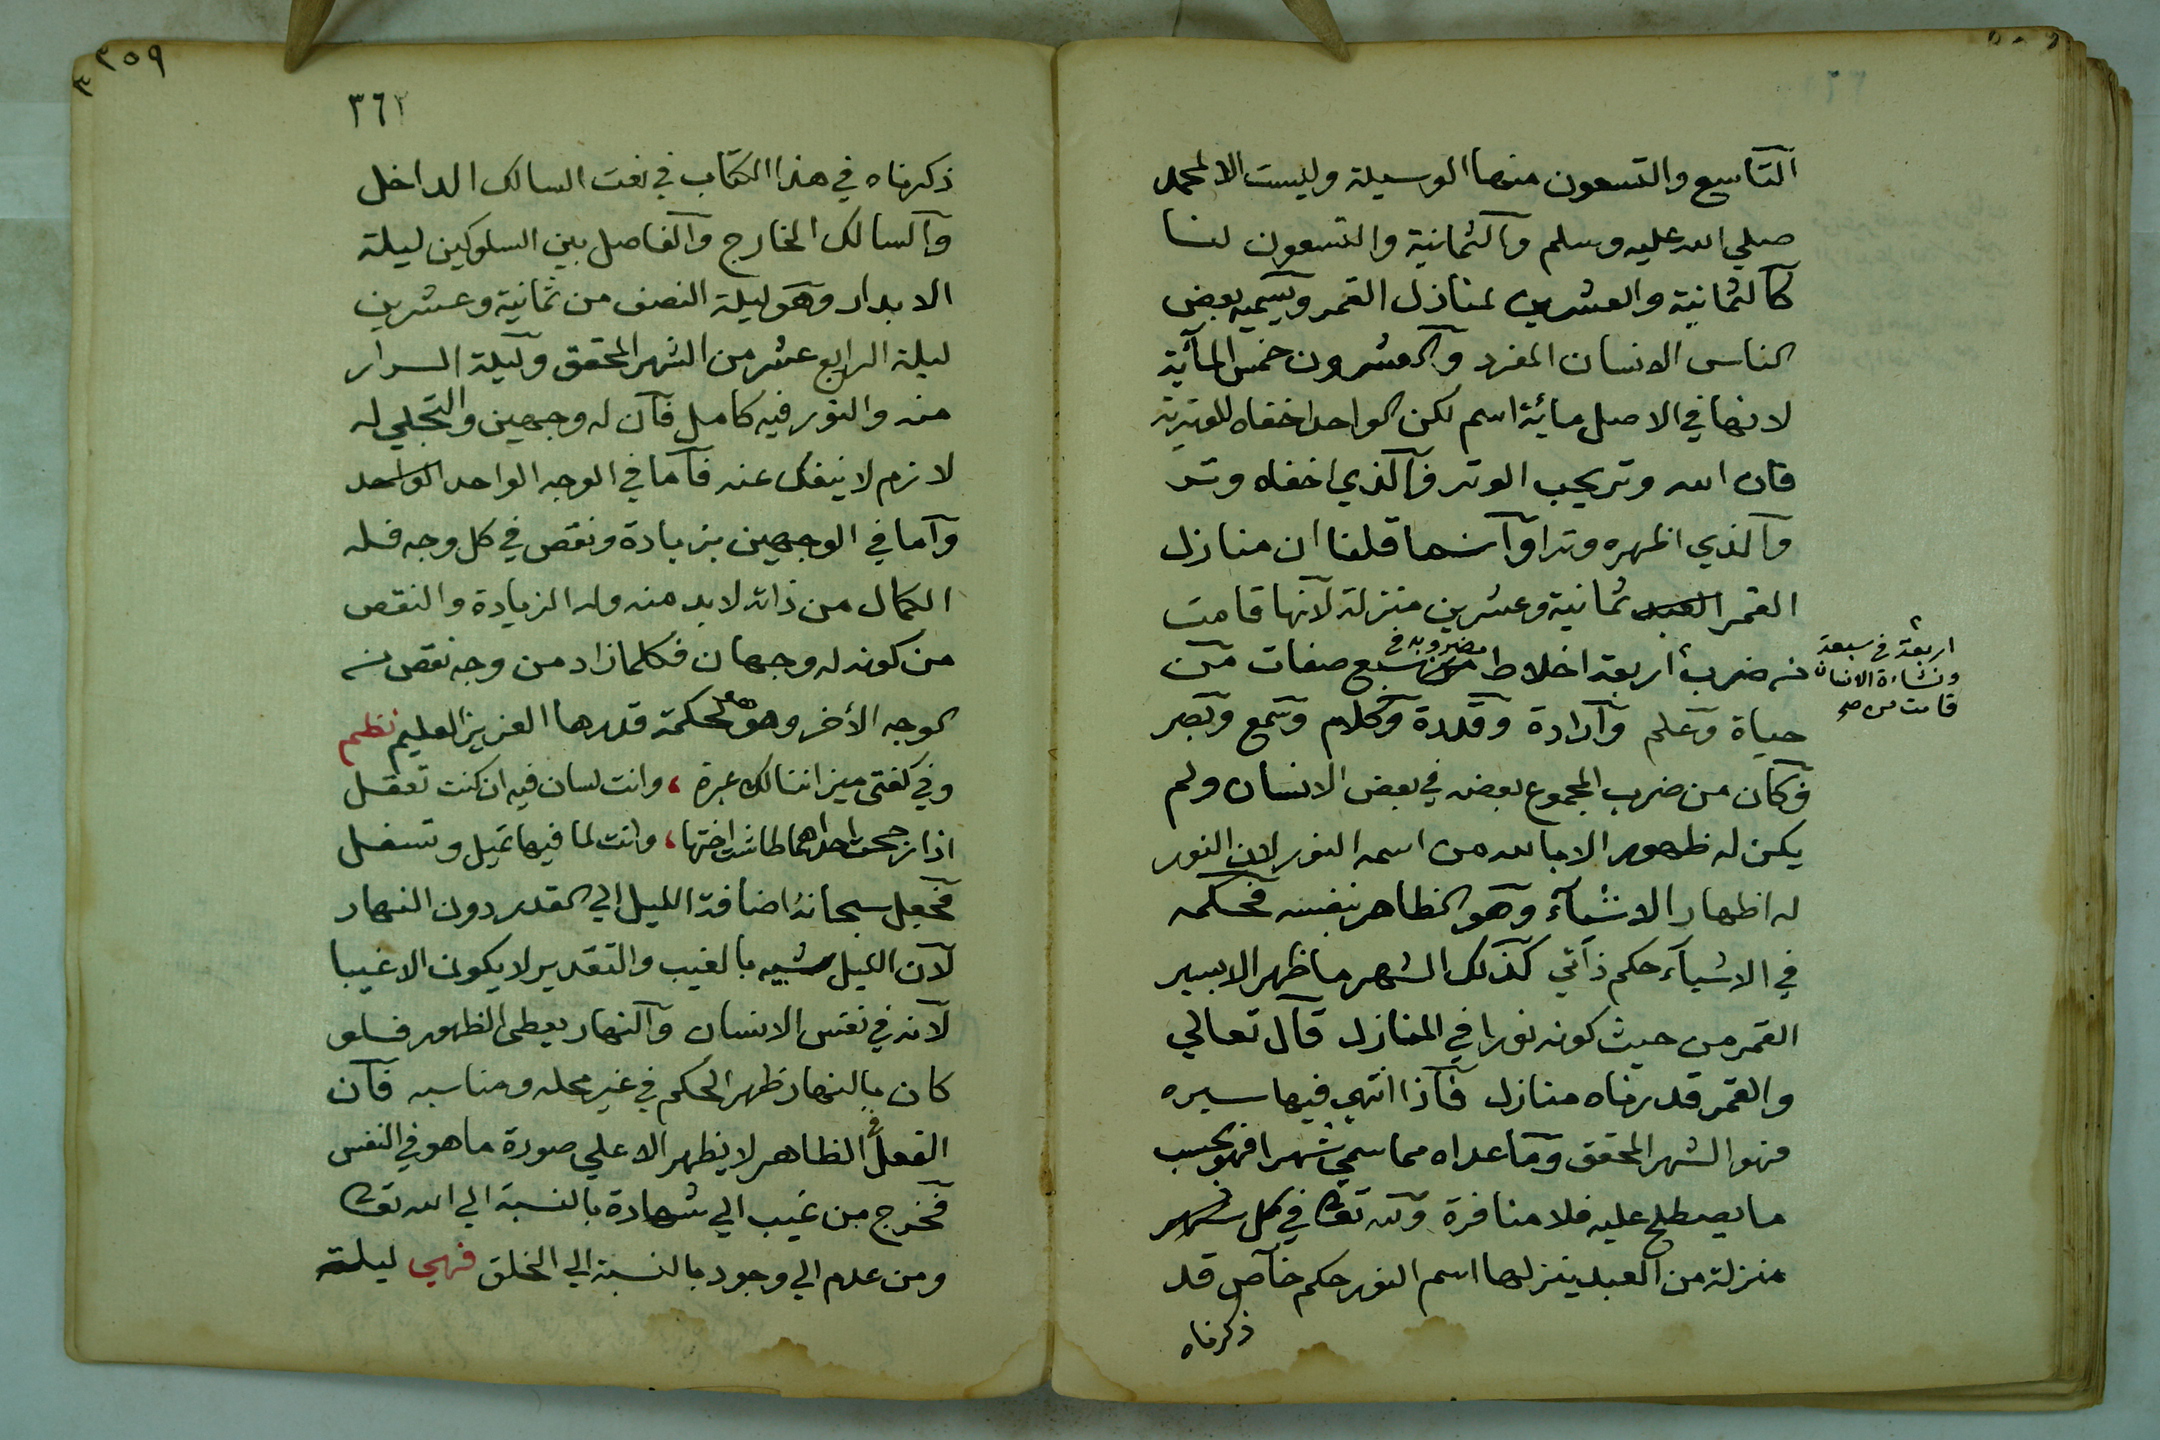 التاسع والتسعون منها الوسيلة وليست الا لمحمد
صلي الله عليه وسلم والثمانية والتسعون لنا
كالثمانية والعشرين لمنازل القمر ويسميه بعض
الناس الانسان المفرد والعشرون خمس المائة
لانها في الاصل مائة اسم لكن الواحد اخفاه للوترية
فان الله وتر يحب الوتر فالذي اخفاه وتر
والذي اظهره وترا وانما قلنا ان منازل
القمر العبد ثمانية وعشرين منزلة لانها قامت
من ضرب اربعة اخلاط مضروبة في سبع صفات من
اربعة في سبعة
ونشاءة الانسان
قامت من صح
حياة وعلم وارادة وقدرة وكلام وسمع وبصر
فكان من ضرب المجموع بعضه في بعض الانسان ولم
يكن له ظهور الا بالله من اسمه النور لان النور
له اظهار الاشياء وهو الظاهر بنفسه فحكمه
في الاشياء حكم ذاتي كذلك الشهر ما ظهر الا بسير
القمر من حيث كونه نورا في المنازل قال تعالي
والقمر قدرناه منازل فاذا انتهي فيها سيره
فهو الشهر المحقق وما عداه مما سمي شهرا فهو بحسب
ما يصطلح عليه فلا منافرة ولله تعا في كل شهر
منزلة من العبد ينزلها اسم النور حكم خاص قد
ذكرناه
٣٥٩
٣٦٢
ذكرناه في هذا الكتاب في نعت السالك الداخل
والسالك الخارج والفاصل بين السلوكين ليلة
الابدار وهو ليلة النصف من ثمانية وعشرين
ليلة الرابع عشر من الشهر المحقق وليلة السرار
منه والنور فيه كامل فان له وجهين والتجلي له
لازم لا ينفك عنه فاما في الوجه الواحد الواحد
واما في الوجهين بزيادة ونقص في كل وجه فله
الكمال من ذاته لا بد منه وله الزيادة والنقص
من كونه له وجهان فكلما زاد من وجه نقص من
الوجه الأخر وهو هو لحكمة قدرها العزيز العليم نظم
وفي كفتي ميزاننا لك عبرة ، وانت لسان فيه ان كنت تعقل
اذا رجحت احداهما طاشت اختها ، وانت لما فيها تميل وتسفل
فجعل سبحانه اضافة الليل الي القدر دون النهار
لان الليل شبيه بالغيب والتقدير لا يكون الا غيبا
لانه في نفس الانسان والنهار يعطي الظهور فلو
كان بالنهار ظهر الحكم في غير محله ومناسبه فان
الفعل في الظاهر لا يظهر الا علي صورة ما هو في النفس
فخرج من غيب الي شهادة بالنسبة الي الله تعا
ومن عدم الي وجود بالنسبة الي الخلق فهي ليلة